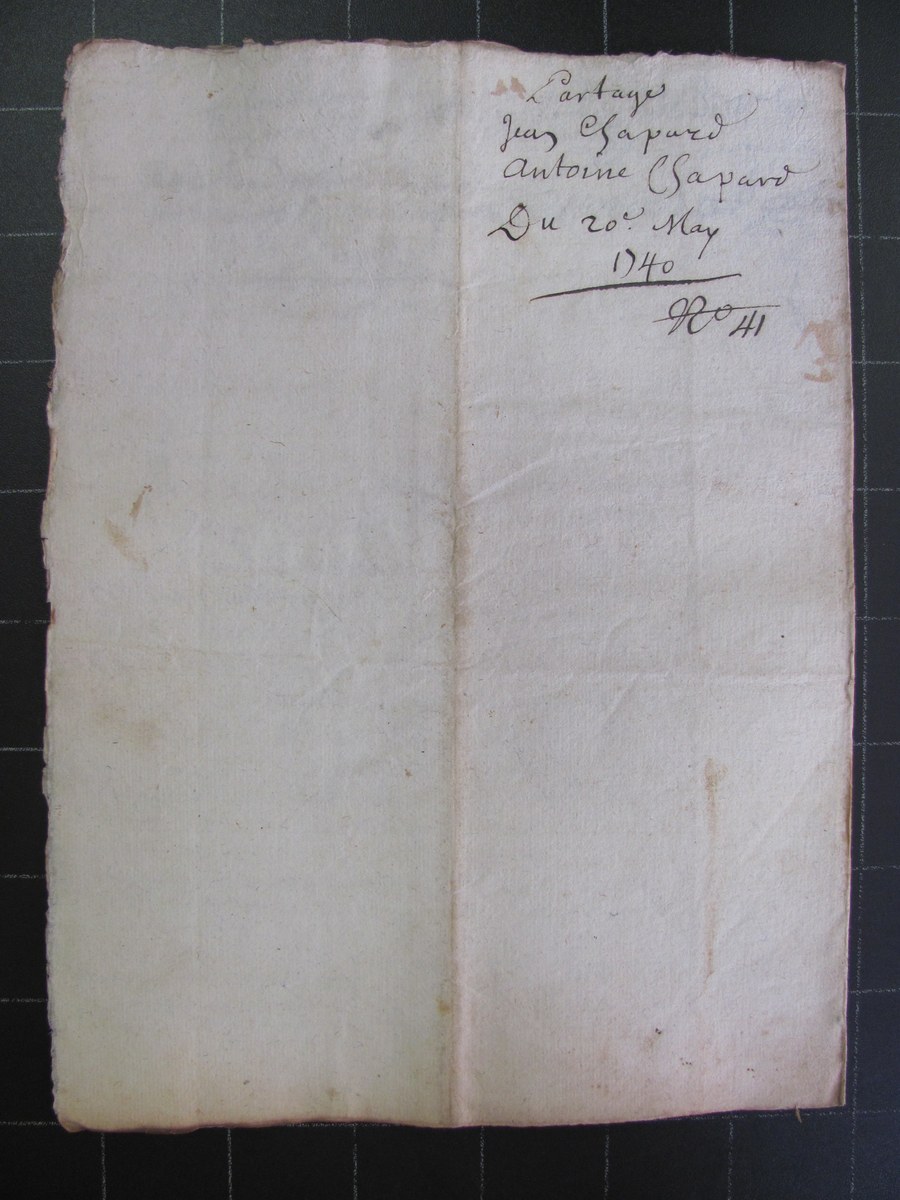 Partage
Jean Chapard
Antoine Chapard
Du 20e. May
1740
No 41